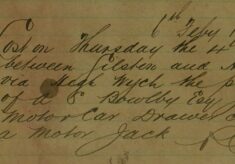 6th Feby 1
Lost on Thursday the 4
between Gilston and
via High Wych the p
of A S Bowlby Esq
Motor Car Drawer
a Motor Jack